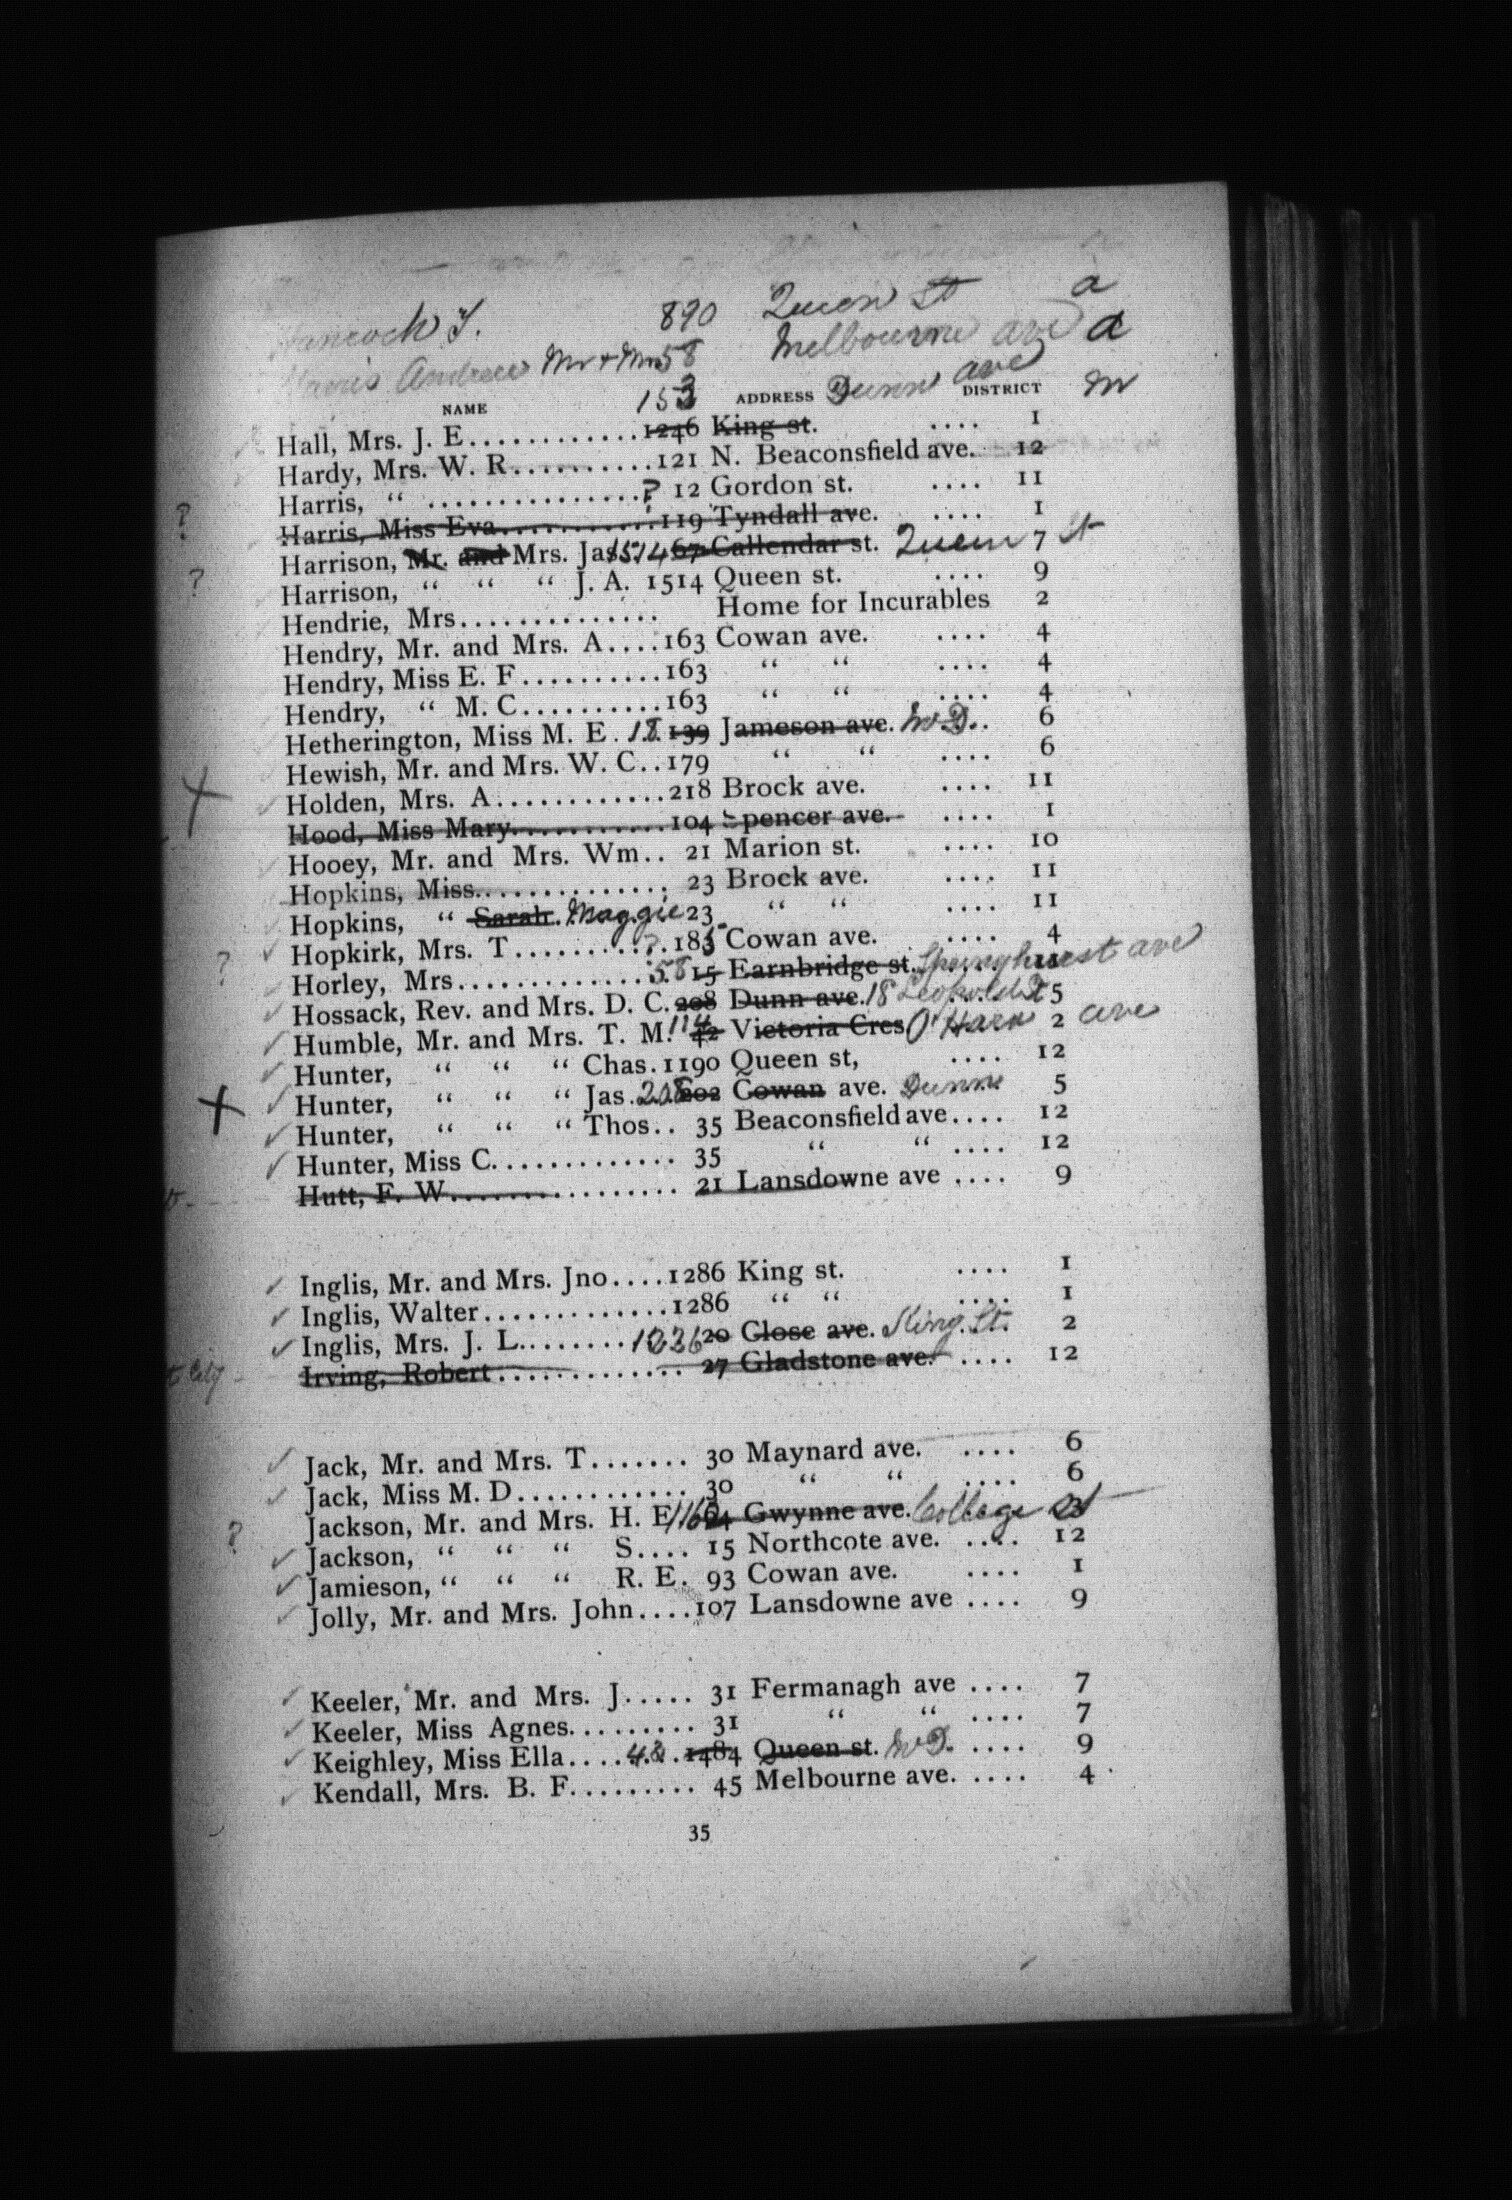 Hancock T. 890 Queen St a
Harris Andrew Mr + Mrs 58 Melbourne ave a
153 Dunn ave m
NAME ADDRESS DISTRICT
Hall, Mrs. J. E............1246 King st. .... 1
Hardy, Mrs. W. R..........121 N. Beaconsfield ave. 12
Harris, “ ...............? 12 Gordon st. .... 11
? Harris, Miss Eva...........119 Tyndall ave. .... 1
Harrison, Mr. and Mrs. Jas. 1514 67 Callendar st. Queen st 7
? Harrison, “ “ “ J. A. 1514 Queen st. .... 9
Hendrie, Mrs.............. Home for Incurables 2
Hendry, Mr. and Mrs. A....163 Cowan ave. .... 4
Hendry, Miss E. F..........163 “ “ .... 4
Hendry, “ M. C..........163 “ “ .... 4
Hetherington, Miss M. E... 18 139 Jameson ave. W.D. 6
Hewish, Mr. and Mrs. W. C..179 “ “ .... 6
Holden, Mrs. A............218 Brock ave. .... 11
Hood, Miss Mary...........104 Spencer ave. .... 1
Hooey, Mr. and Mrs. Wm.. 21 Marion st. .... 10
Hopkins, Miss.............. 23 Brock ave. .... 11
Hopkins, “ Sarah. Maggie 23 “ “ .... 11
Hopkirk, Mrs. T...........185 Cowan ave. .... 4
? Horley, Mrs.............. 58 15 Earnbridge st. Springhurst ave 11
Hossack, Rev. and Mrs. D. C. 208 Dunn ave. 18 Leopold St 5
Humble, Mr. and Mrs. T. M. 114 42 Victoria Cres O'Hara ave 2
Hunter, “ “ “ Chas. 1190 Queen st, .... 12
Hunter, “ “ “ Jas. 208 202 Cowan ave. Dunn 5
Hunter, “ “ “ Thos.. 35 Beaconsfield ave.... 12
Hunter, Miss C............. 35 “ “ .... 12
Hutt, F. W................ 21 Lansdowne ave .... 9
Inglis, Mr. and Mrs. Jno....1286 King st. .... 1
Inglis, Walter.............1286 “ “ .... 1
Inglis, Mrs. J. L......... 1036 20 Close ave. King St. 2
City Irving, Robert............. 27 Gladstone ave. .... 12
Jack, Mr. and Mrs. T....... 30 Maynard ave. .... 6
Jack, Miss M. D............ 30 “ “ .... 6
? Jackson, Mr. and Mrs. H. E. 64 Gwynne ave. College St
Jackson, “ “ “ S.... 15 Northcote ave. .... 12
Jamieson, “ “ “ R. E. 93 Cowan ave. .... 1
Jolly, Mr. and Mrs. John....107 Lansdowne ave .... 9
Keeler, Mr. and Mrs. J..... 31 Fermanagh ave .... 7
Keeler, Miss Agnes......... 31 “ “ .... 7
Keighley, Miss Ella....... 48 1484 Queen st. W D. .... 9
Kendall, Mrs. B. F......... 45 Melbourne ave. .... 4
35